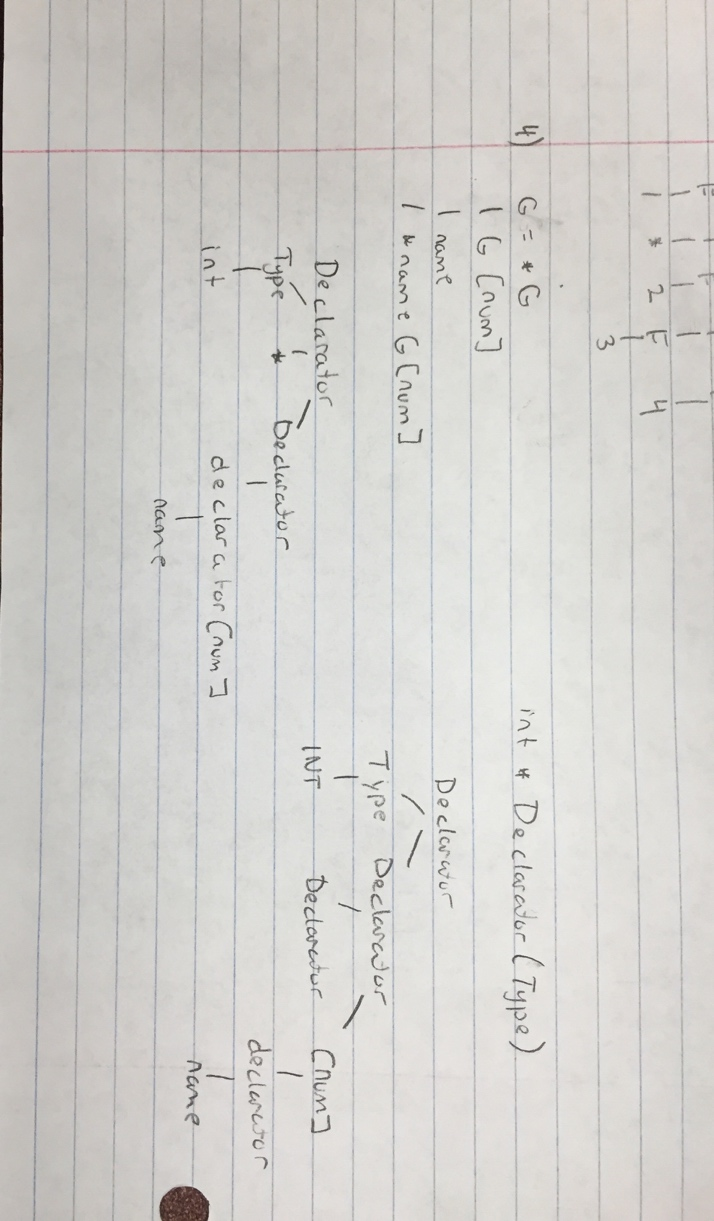 F
1 * 2 F 4
3
4) G = * G
| G [num]
| name
| * name G [num]
int * Declarator (Type)
Declarator
Type * Declarator
int declarator [num]
name
Declarator
Type Declarator
INT Declarator [num]
declarator
name